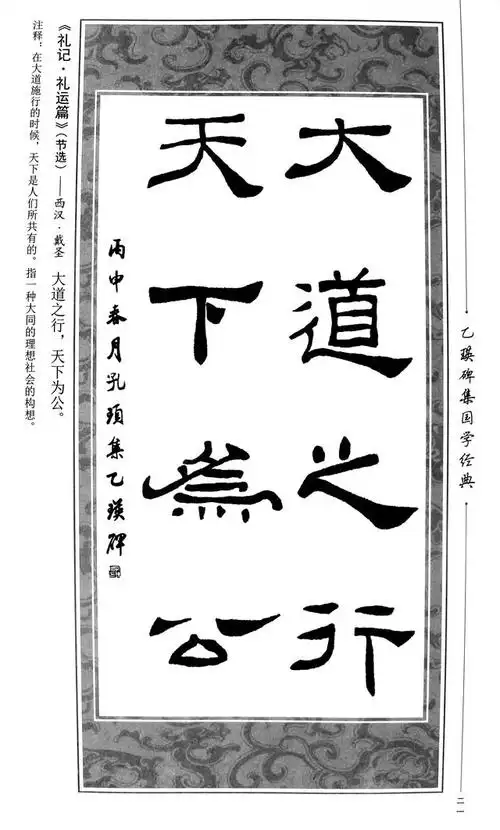 乙瑛碑集国学经典
大道之行
天下為公
丙申春月孔頊集乙瑛碑
《礼记·礼运篇》(节选)——西汉·戴圣 大道之行，天下为公。
注释：在大道施行的时候，天下是人们所共有的。指一种大同的理想社会的构想。
二一